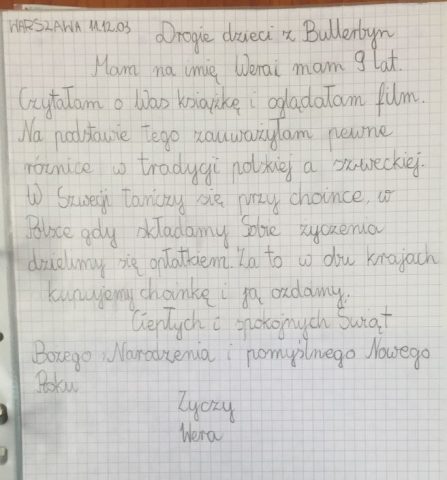 WARSZAWA 11.12.03 Drogie dzieci z Bullerbyn
Mam na imię Wera i mam 9 lat.
Czytałam o Was książkę i oglądałam film.
Na podstawie tego zauważyłam pewne
różnice w tradycji polskiej a szweckiej.
W Szwecji tańczy się przy choince, w
Polsce gdy składamy Sobie życzenia
dzielimy się opłatkiem. Za to w obu krajach
kupujemy choinkę i ją ozdamy.
Ciepłych i spokojnych Świąt
Bożego Narodzenia i pomyślnego Nowego
Roku
Życzy
Wera